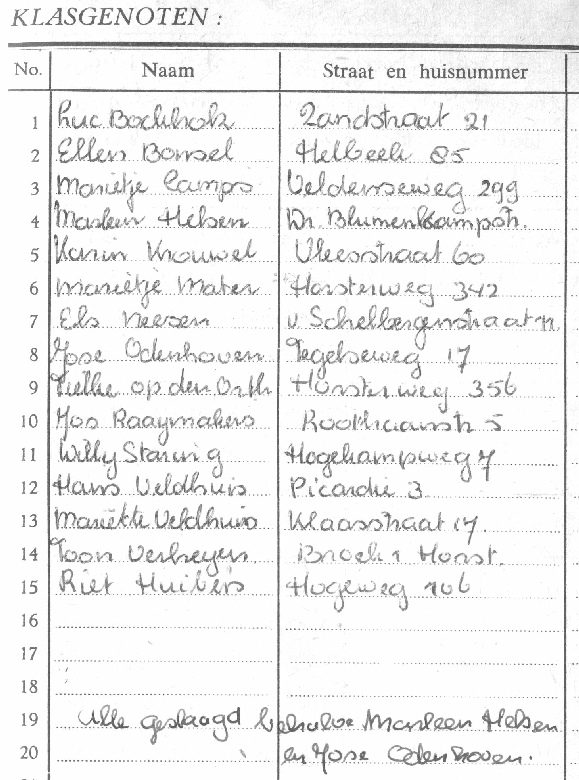 KLASGENOTEN :
No. Naam Straat en huisnummer
1 Luc Bockholz Zandstraat 21
2 Ellen Bonsel Helbeek 85
3 Marietje Camps Veldenseweg 299
4 Marleen Helsen Dr. Blumenkampstr.
5 Karin Krouwel Vleesstraat 60
6 Marietje Mater Horsterweg 342
7 Els Neesen v Schelbergenstraat
8 Jose Odenhoven Tegelseweg 17
9 op den Orth Horsterweg 356
10 Jos Raaymakers 5
11 Willy Staring Hogekampweg 7
12 Hans Veldhuis Picardie 3
13 Mariëtte Veldhuis Klaasstraat 17.
14 Toon Verheyen Broek 1 Horst.
15 Riet Huibers Hogeweg 106
16
17
18
19 Alle geslaagd behalve Marleen Helsen
20 en Jose Odenhoven.